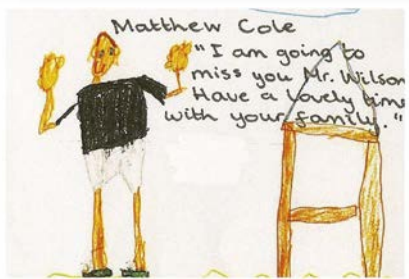 Matthew Cole
"I am going to
miss you Mr. Wilson
Have a lovely time
with your family."